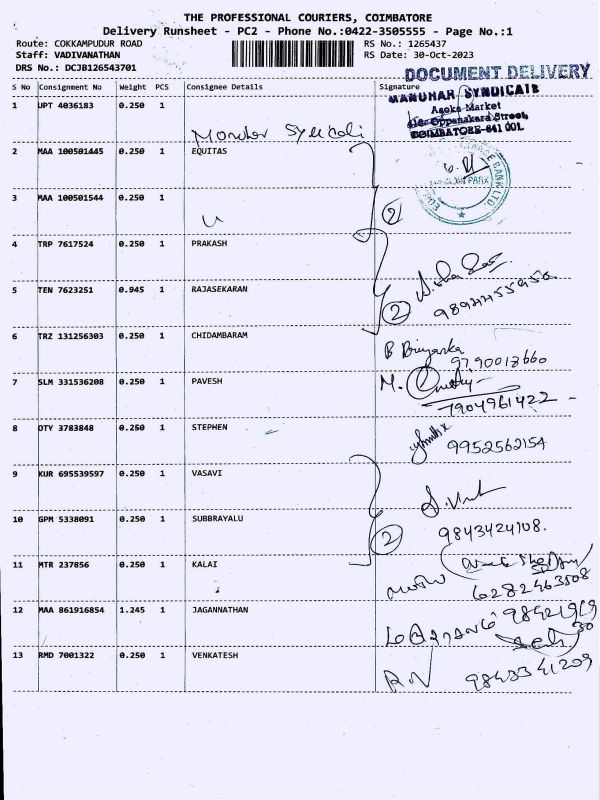 THE PROFESSIONAL COURIERS, COIMBATORE
Delivery Runsheet - PC2 - Phone No.:0422-3505555 - Page No.:1
Route: COKKAMPUDUR ROAD RS No.: 1265437
Staff: VADIVANATHAN RS Date: 30-Oct-2023
DRS No.: DCJB126543701
DOCUMENT DELIVERY
S No Consignment No Weight PCS Consignee Details Signature
MANOHAR SYNDICATE
Asoka Market
Oppanakara Street,
COIMBATORE-641 001.
1 UPT 4036183 0.250 1
2 MAA 100501445 0.250 1 EQUITAS
3 MAA 100501544 0.250 1
2
4 TRP 7617524 0.250 1 PRAKASH
5 TEN 7623251 0.945 1 RAJASEKARAN
2
6 TRZ 131256303 0.250 1 CHIDAMBARAM
B Priyanka
9790018660
7 SLM 331536208 0.250 1 PAVESH
M.
7904961422
8 DTY 3783848 0.250 1 STEPHEN
9952562154
9 KUR 695539597 0.250 1 VASAVI
10 GPM 5338091 0.250 1 SUBBRAYALU
2
9843424108.
11 MTR 237856 0.250 1 KALAI
6282463508
12 MAA 861916854 1.245 1 JAGANNATHAN
13 RMD 7001322 0.250 1 VENKATESH
R.V 9843341209